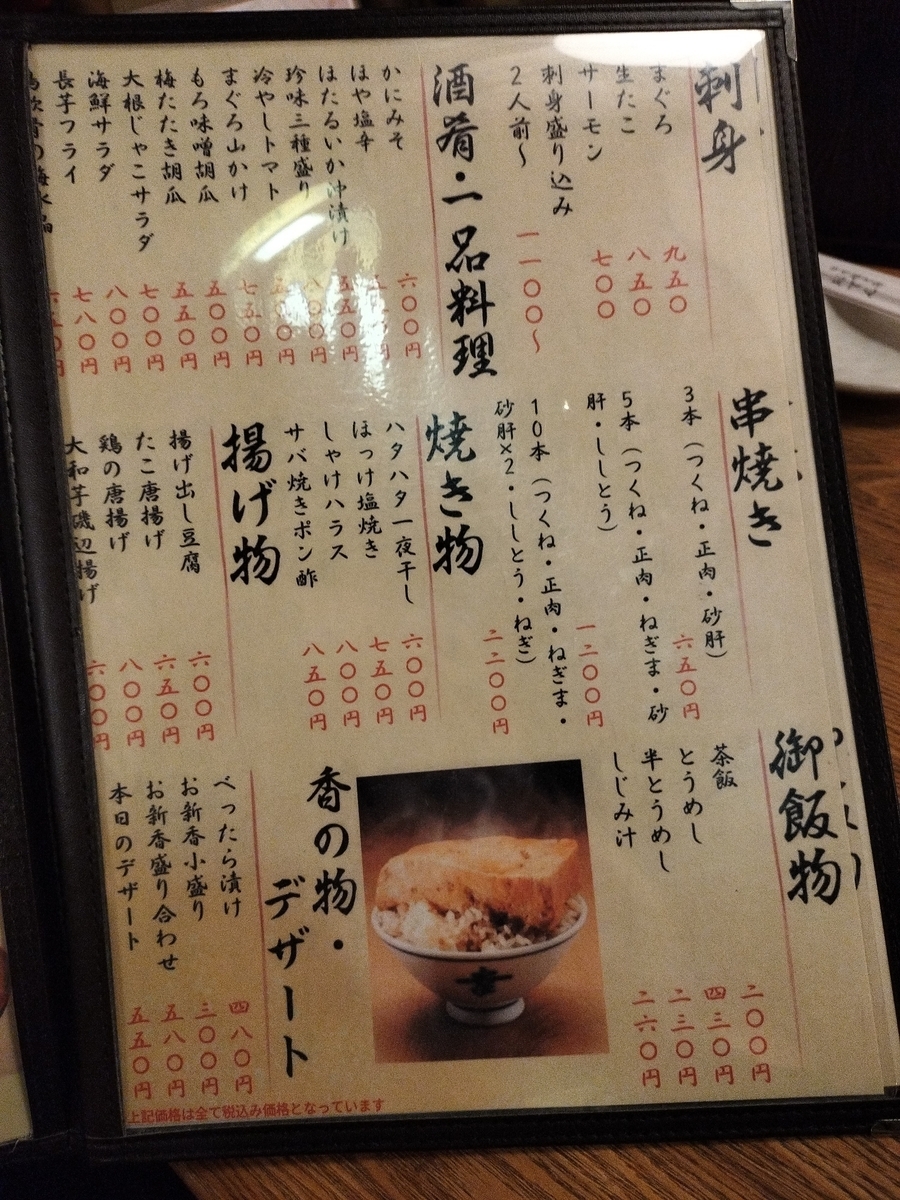 刺身
まぐろ 九五〇
生たこ 八五〇
サーモン 七〇〇
刺身盛り込み
2人前〜 一一〇〇〜
酒肴・一品料理
かにみそ 六〇〇円
ほや塩辛
ほたるいか沖漬け
珍味三種盛り
冷やしトマト
まぐろ山かけ
もろ味噌胡瓜 五〇〇円
梅たたき胡瓜 五五〇円
大根じゃこサラダ 七〇〇円
海鮮サラダ 八〇〇円
長芋フライ 七八〇円
串焼き
3本(つくね・正肉・砂肝) 六五〇円
5本(つくね・正肉・ねぎま・砂
肝・ししとう) 一二〇〇円
10本(つくね・正肉・ねぎま・
砂肝×2・ししとう・ねぎ) 二二〇〇円
焼き物
ハタハタ一夜干し 六〇〇円
ほっけ塩焼き 七五〇円
しゃけハラス 八〇〇円
サバ焼きポン酢 八五〇円
揚げ物
揚げ出し豆腐 六〇〇円
たこ唐揚げ 六五〇円
鶏の唐揚げ 八〇〇円
大和芋磯辺揚げ 六〇〇円
御飯物
茶飯 二〇〇円
とうめし 四三〇円
半とうめし 二三〇円
しじみ汁 二六〇円
香の物・
デザート
べったら漬け 四八〇円
お新香小盛り 三〇〇円
お新香盛り合わせ 五八〇円
本日のデザート 五五〇円
上記価格は全て税込み価格となっています